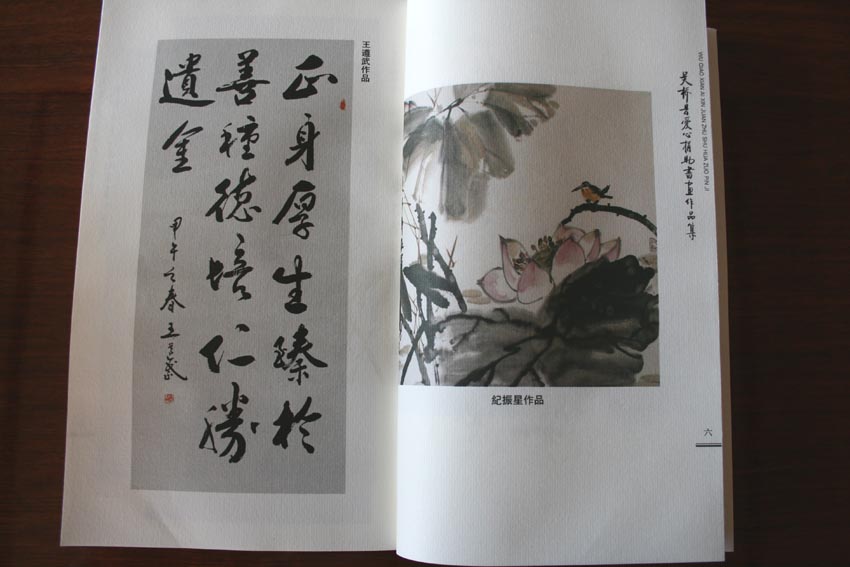 王遵武作品
正身厚生臻於
善種德培仁勝
遺金
甲午之春王遵武
紀振星作品
WU QIAO XIAN AI XIN JUAN ZHU SHU HUA ZUO PIN JI
吴桥县爱心捐助書画作品集
六